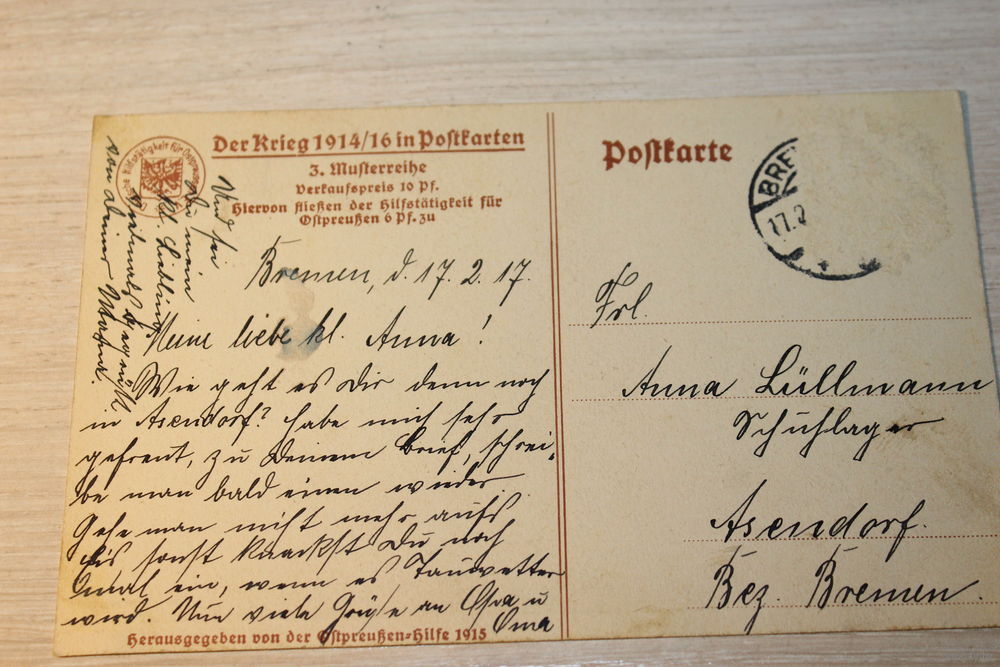 Der Krieg 1914/16 in Postkarten
3. Musterreihe
Verkaufspreis 10 Pf.
Hiervon fließen der Hilfstätigkeit für
Ostpreußen 6 Pf. zu
Bremen, d. 17. 2. 17.
Meine liebe kl. Anna!
Wie geht es Dir denn noch
in Asendorf? habe mich sehr
gefreut, zu Deinem Brief, schrei-
be man bald einen wieder
Gehe man nicht mehr aufs
Eis sonst Du noch
mal ein, wenn es Tauwetter
wird. Nun viele Grüße an Opa u
Oma
Und sei
Du mein
kl. Liebling
vielmals gegrüßt
von Deiner Mama.
Herausgegeben von der Ostpreußen-Hilfe 1915
Postkarte
BRE
17.2
Frl.
Anna Lüllmann
Schuhlager
Asendorf.
Bez. Bremen.